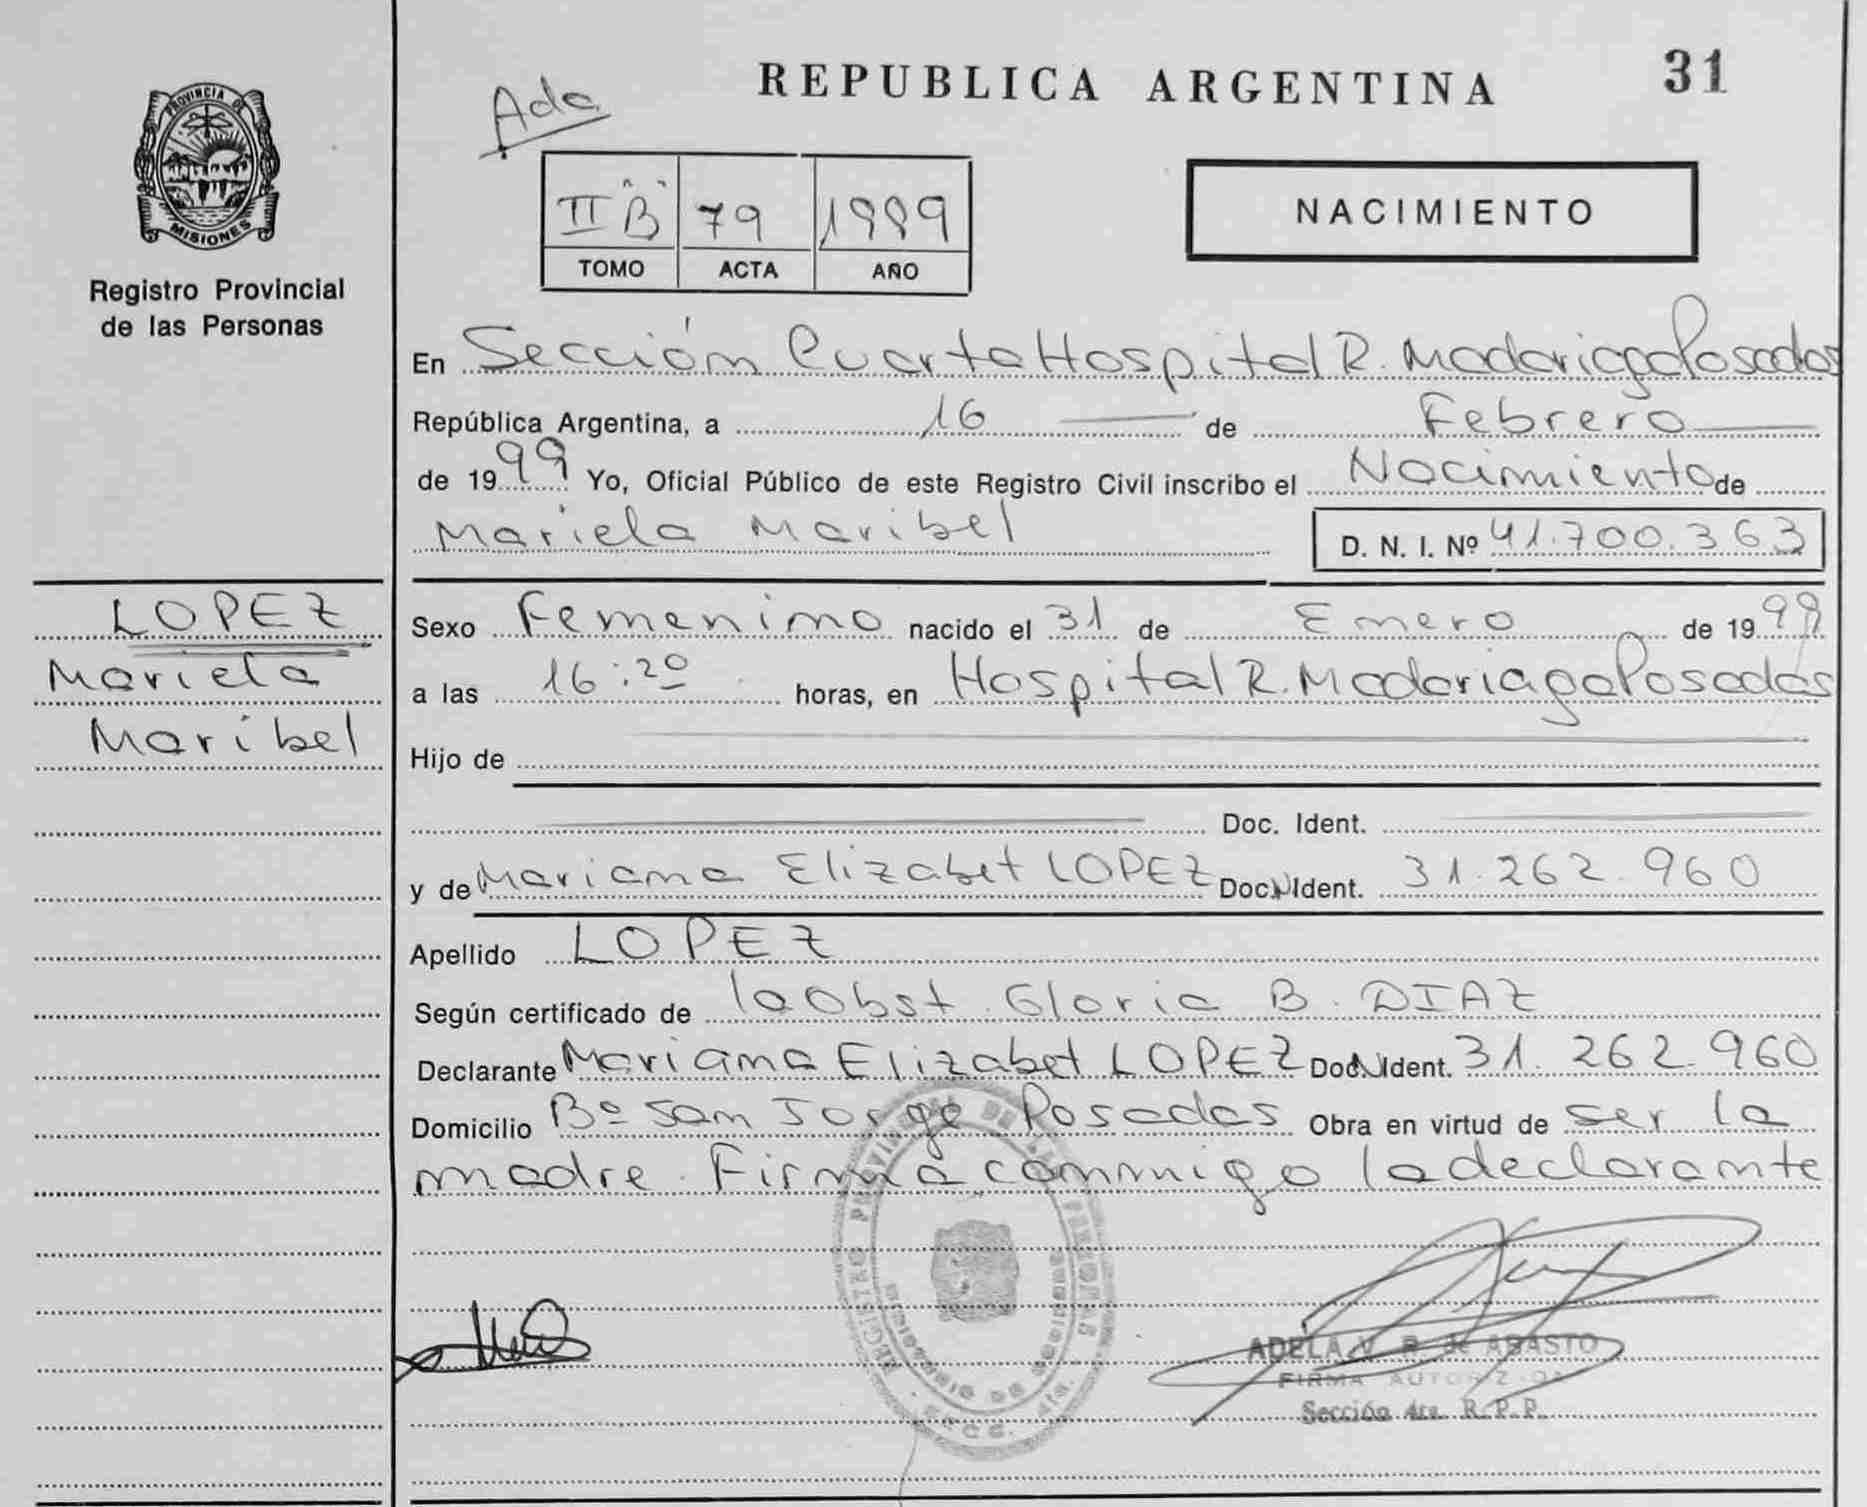 PROVINCIA DE
MISIONES
Registro Provincial
de las Personas
LOPEZ
Mariela
Maribel
REPUBLICA ARGENTINA
31
Ada
II "B" 79 1999
TOMO ACTA AÑO
NACIMIENTO
En Sección Cuarta Hospital R. Madariaga Posadas
República Argentina, a 16 de Febrero
de 1999 Yo, Oficial Público de este Registro Civil inscribo el Nacimiento de
Mariela Maribel D. N. I. Nº 41.700.363
Sexo Femenino nacido el 31 de Enero de 1999
a las 16:20 horas, en Hospital R. Madariaga Posadas
Hijo de
Doc. Ident.
y de Mariana Elizabet LOPEZ Doc. Ident. 31.262.960
Apellido LOPEZ
Según certificado de la Obst. Gloria B. DIAZ
Declarante Mariana Elizabet LOPEZ Doc. Ident. 31.262.960
Domicilio Bº San Jorge Posadas Obra en virtud de ser la
madre. Firma conmigo la declarante
REGISTRO PROVINCIAL DE LAS PERSONAS
ADELA V. R. de ABASTO
FIRMA AUTORIZADA
Sección 4ta. R.P.P.